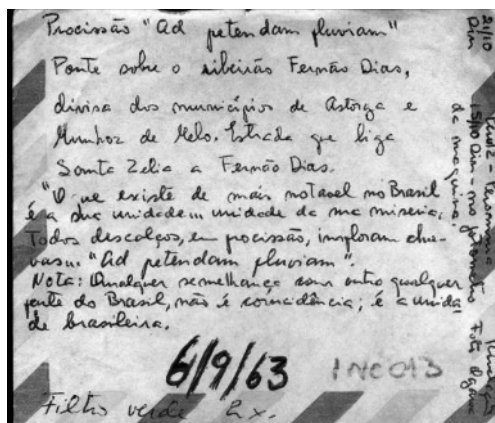 Procissão "Ad petendam pluviam"
Ponte sobre o ribeirão Fernão Dias,
divisa dos municípios de Astorga e
Munhoz de Melo. Estrada que liga
Santa Zelia a Fernão Dias.
"O que existe de mais notavel no Brasil
é a sua unidade... unidade da sua miseria.
Todos descalços, em procissão, imploram chu-
vas..." "Ad petendam pluviam".
Nota: Qualquer semelhança com outro qualquer
ponte do Brasil, não é coincidência; é a unida-
de brasileira.
6/9/63
INC013
Filtro verde 2x.
21/10
Din
15/10 Din - no
da maquina
Foto